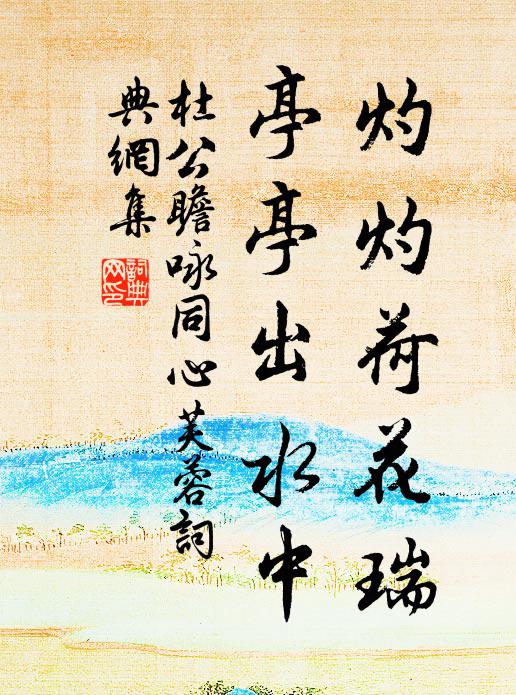 灼灼荷花瑞
亭亭出水中
杜公瞻咏同心芙蓉詞
典網集
詞典
网印